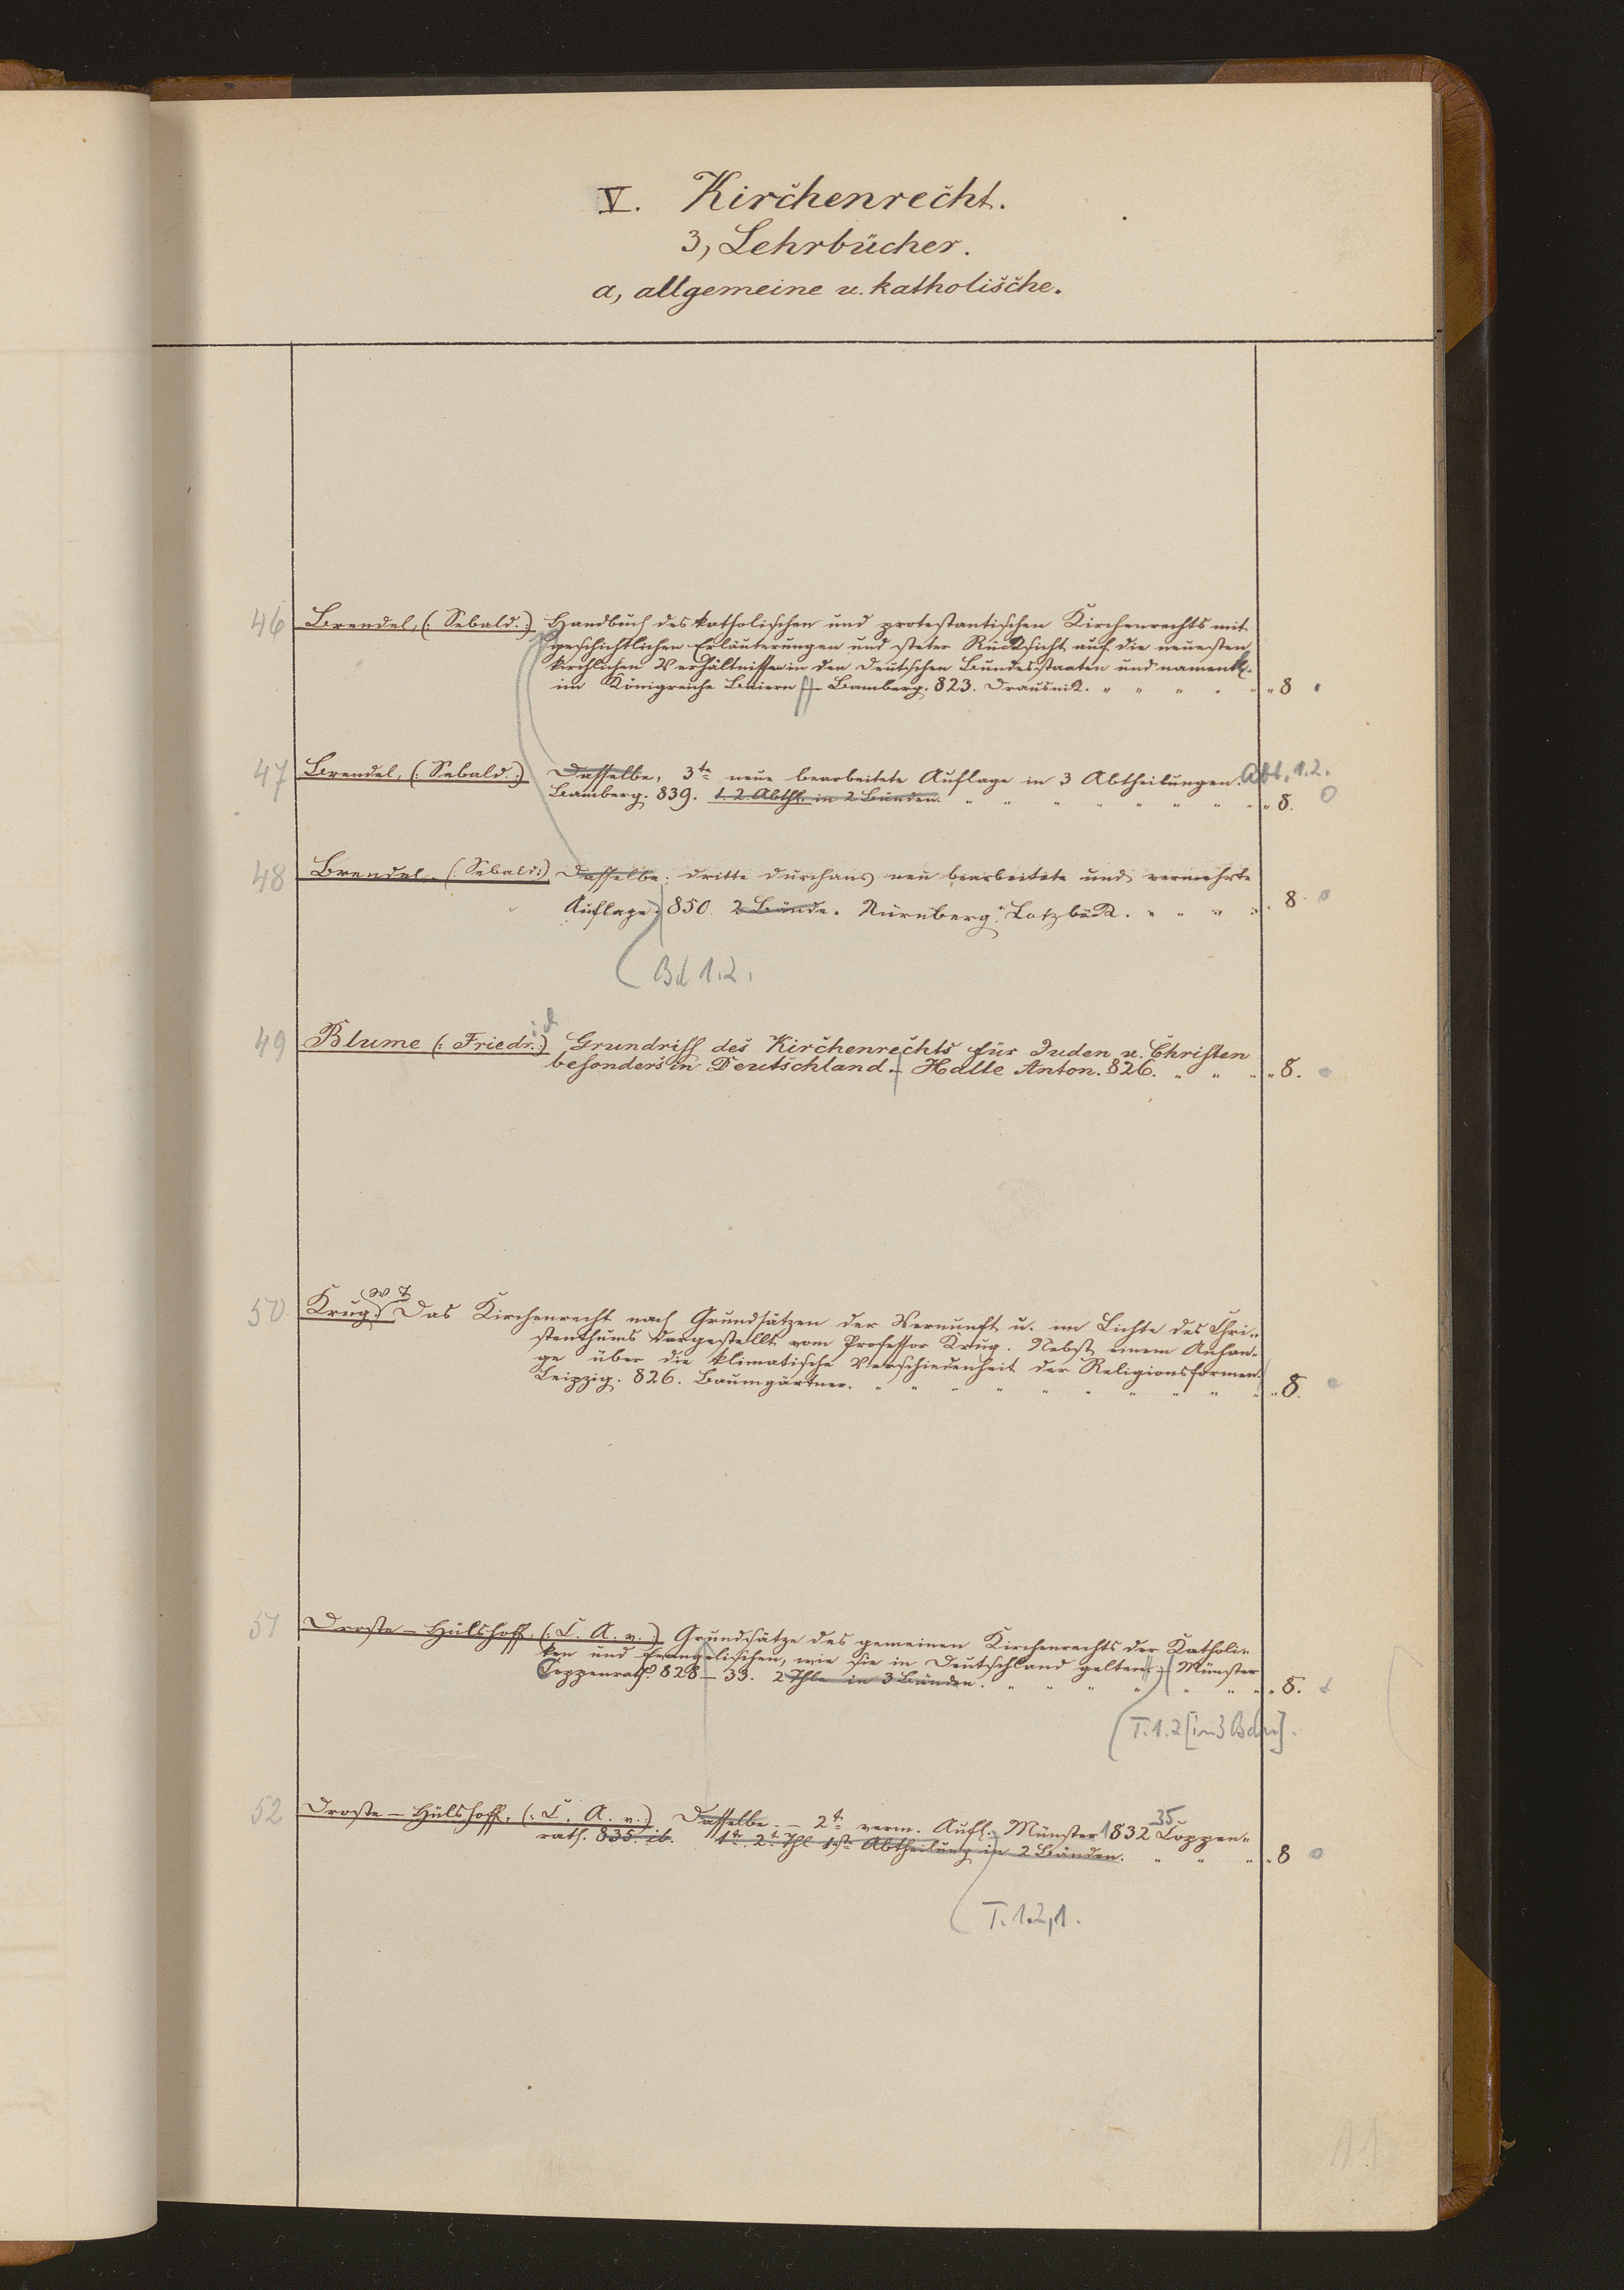 V. Kirchenrecht.
3, Lehrbücher.
a, allgemeine u. katholische.
46 Brendel, (: Sebald. :) Handbuch des katholischen und protestantischen Kirchenrechts mit
geschichtlichen Erläuterungen und steter Rücksicht auf die neuesten
kirchlichen Verhältnisse in den deutschen Bundesstaaten und namentl.
im Königreiche Baiern. Bamberg. 823. Drausnick. " " " " " " 8
47 Brendel, (: Sebald. :) Dasselbe, 3te neue bearbeitete Auflage in 3 Abtheilungen. Abt. 1.2.
Bamberg. 839. 1. 2 Abthl. in 2 Bänden. " " " " " " " " " 8.
48 Brendel. (: Sebald :) Dasselbe; dritte durchaus neu bearbeitete und vermehrte
Auflage. 850. 2 Bände. Nürnberg. Lotzbeck. " " " " 8.
Bd 1.2.
49 Blume (: Friedr. :) Grundriss des Kirchenrechts für Juden u. Christen
besonders in Deutschland. - Halle Anton. 826. " " " " 8.
50. Krug. (W T) Das Kirchenrecht nach Grundsätzen der Vernunft u. im Lichte des Chri-
stenthums dargestellt vom Professor Krug. Nebst einem Anhan-
ge über die klimatische Verschiedenheit der Religionsformen.
Leipzig. 826. Baumgärtner. " " " " " " " " " " " 8.
51 Droste - Hülshoff, (: C. A. v. :) Grundsätze des gemeinen Kirchenrechts der Katholi-
ken und Evangelischen, wie sie in Deutschland gelten. Münster
Coppenrath. 828 - 33. 2 Thle in 3 Bänden. " " " " " " " " 8.
T. 1. 2 [in 3 Bdn].
52 Droste - Hülshoff, (: C. A. v. :) Dasselbe. - 2t. verm. Aufl. Münster 1832 35 Coppen-
rath. 835. ib. 1t. 2t. Thl 1ste Abtheilung in 2 Bänden. " " " " 8
T. 1.2,1.
11